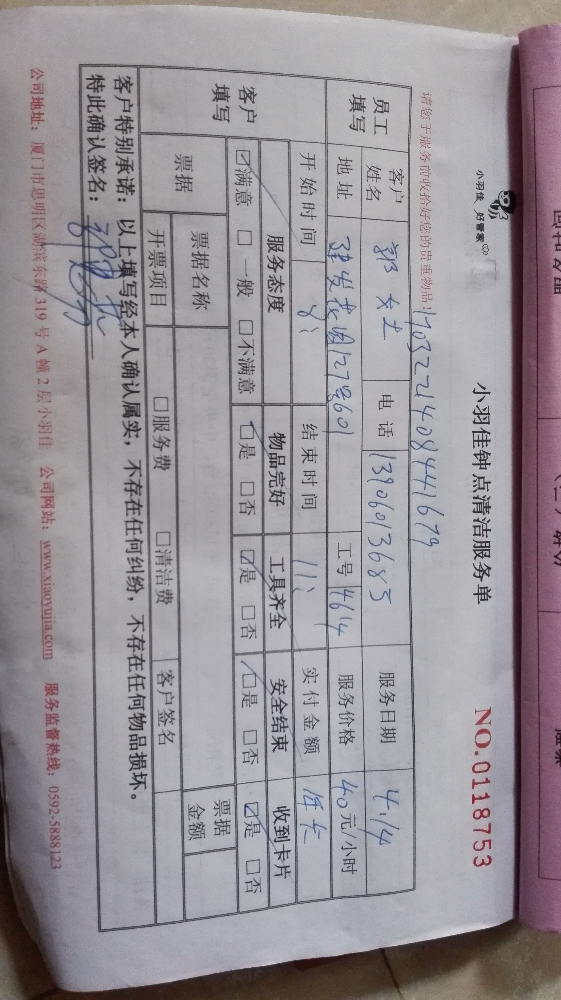 小羽佳 好管家
小羽佳钟点清洁服务单
NO.0118753
请您于服务前收拾好您的贵重物品！
员工填写 客户姓名 郭女士 电话 13906013685 服务日期 4.14
地址 建发花园127号601 工号 4614 服务价格 40元/小时
开始时间 8: 结束时间 11: 实付金额
客户填写 服务态度 物品完好 工具齐全 安全结束 收到卡片
☑满意 □一般 □不满意 ☑是 □否 ☑是 □否 ☑是 □否 ☑是 □否
票据 票据名称 票据金额
开票项目 □服务费 □清洁费 客户签名
客户特别承诺：以上填写经本人确认属实，不存在任何纠纷，不存在任何物品损坏。
特此确认签名：
公司地址：厦门市思明区湖滨东路319号A幢2层小羽佳 公司网站：www.xiaoyujia.com 服务监督热线：0592-5888123